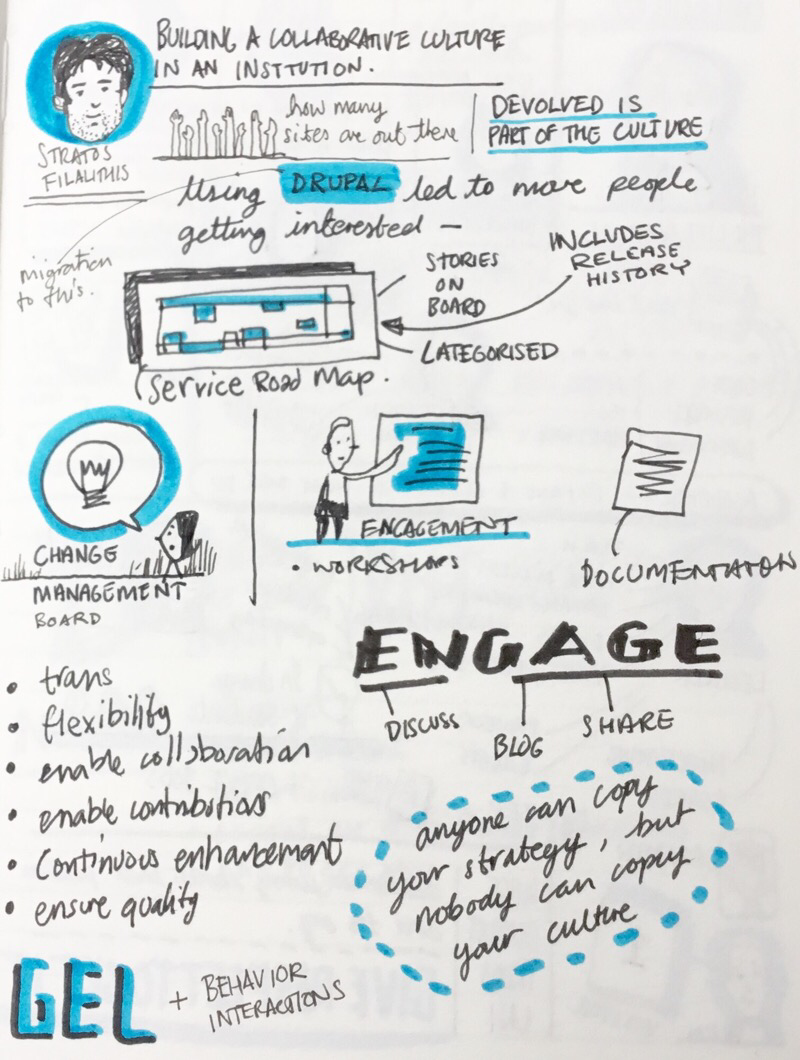 BUILDING A COLLABORATIVE CULTURE
IN AN INSTITUTION.
STRATOS
FILALITHIS
how many
sites are out there
DEVOLVED IS
PART OF THE CULTURE
Using DRUPAL led to more people
getting interested —
migration
to this.
STORIES
ON
BOARD
INCLUDES
RELEASE
HISTORY
CATEGORISED
Service Road Map.
CHANGE
MANAGEMENT
BOARD
ENGAGEMENT
• WORKSHOPS
DOCUMENTATON
ENGAGE
DISCUSS
BLOG
SHARE
• trans
• flexibility
• enable collaboration
• enable contributions
• Continuous enhancement
• ensure quality
anyone can copy
your strategy, but
nobody can copy
your culture
GEL + BEHAVIOR
INTERACTIONS